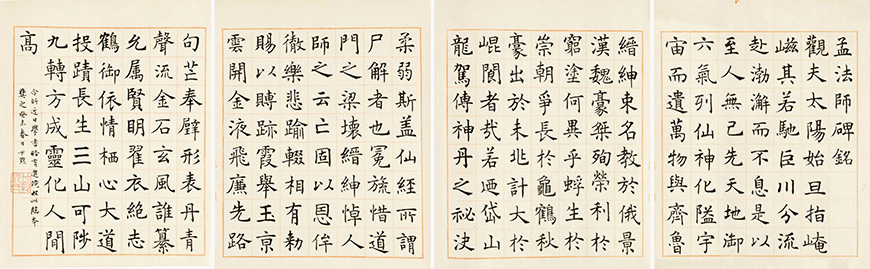 孟法師碑銘
觀夫太陽始旦指崦
嵫其若馳巨川分流
赴渤澥而不息是以
至人無己先天地御
六氣列仙神化隘宇
宙而遺萬物與齊魯
縉紳束名教於俄景
漢魏豪桀殉榮利於
窮塗何異乎蜉生於
崇朝爭長於龜鶴秋
豪出於未兆計大於
崐閬者哉若迺岱山
龍駕傳神丹之祕決
柔弱斯盖仙經所謂
尸解者也冕旒惜道
門之梁壞縉紳悼人
師之云亡固以恩侔
徹樂悲踰輟相有勑
賜以賻跡霞舉玉京
雲開金液飛廉先路
句芒奉璧形表丹青
聲流金石玄風誰纂
允属賢明翟衣絶志
鶴御依情栖心大道
投蹟長生三山可陟
九轉方成靈化人間
高